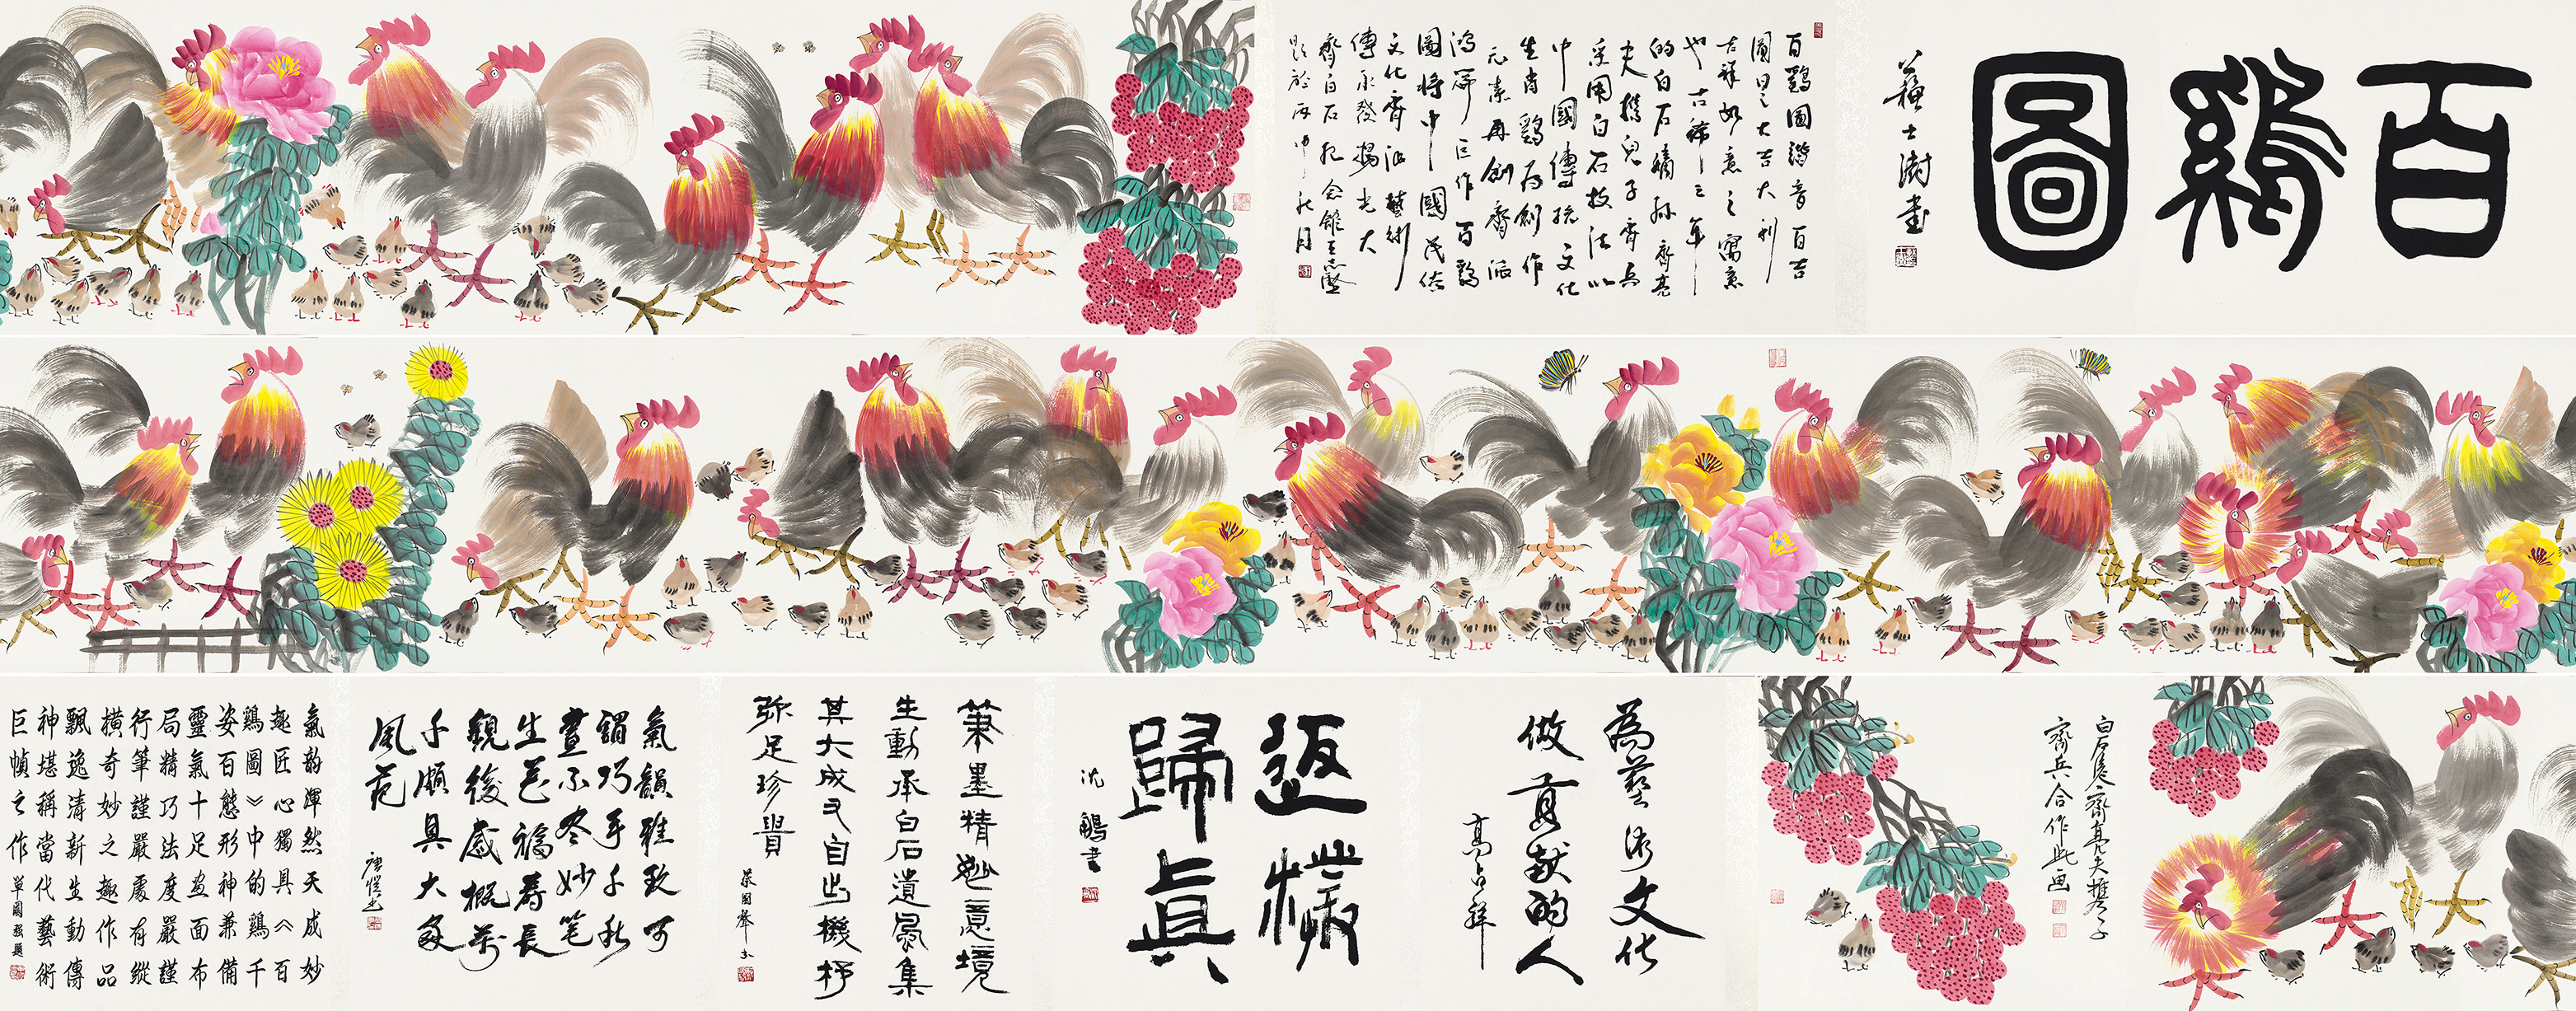 百鷄圖
蘇士澍書
百鷄圖諧音百吉
圖日之大吉大利
吉祥如意之寓意
也古稀之年
的白石嫡孫齊亮
夫携兒子齊兵
采用白石技法以
中國傳統文化
生肖鷄為創作
元素再創齊派
鴻篇巨作百鷄
圖将中國民俗
文化齊派藝術
傳承發揚光大
齊白石紀念館
題於丙申秋月
白石後裔齊亮夫携子
齊兵合作此画
為藝術文化
做貢献的人
高占祥
返樸
歸真
沈鵬書
筆墨精妙意境
生動承白石遺風集
其大成又自出機杼
弥足珍貴
氣韻雅致可
謂巧手千秋
畫不冬妙笔
生花福壽長
觀後感概萬
千頗具大家
風范
唐愷书
氣韵渾然天成妙
趣匠心獨具《百
鷄圖》中的鷄千
姿百態形神兼備
靈氣十足画面布
局精巧法度嚴謹
行筆謹嚴處有縱
橫奇妙之趣作品
飄逸清新生動傳
神堪稱當代藝術
巨幀之作
單國强題